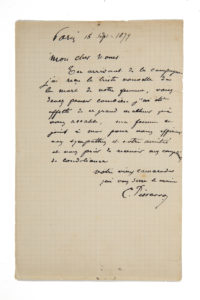 Paris 15 Sept. 1879
Mon cher Monet
En arrivant de la campagne
j'ai reçu la triste nouvelle de
la mort de votre femme, vous
devez penser combien j'ai été
affecté de ce grand malheur qui
vous accable, ma femme se
joint à moi pour vous offrir
nos sympathies et notre amitié
et vous prier de recevoir nos
de condoléance
votre vieux camarade
qui vous serre la main
C. Pissarro